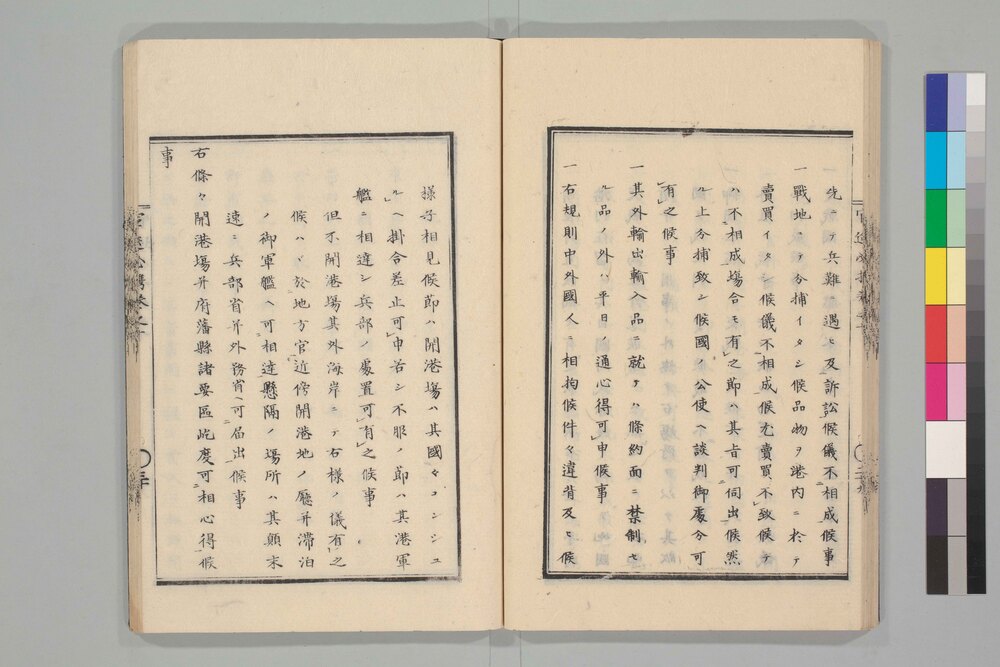 一 洗 テ兵難ニ遇ヒ及訴訟候儀不相成候事
一 戰地ニテ分捕イタシ候品物ヲ港内ニ於テ
賣買イタシ候儀不相成候尤賣買不致候テ
ハ不相成場合モ有之節ハ其旨可伺出候然
ル上分捕致シ候國ノ公使ヘ談判御處分可
有之候事
一 其外輸出輸入品ニ就テハ條約面ニ禁制セ
ル品ノ外ハ平日ノ通心得可申候事
一 右規則中外國人ニ相拘候件々違背及ヒ候
樣子相見候節ハ開港場ハ其國々コンシュ
ルヘ掛合差止可申若シ不服ノ節ハ其港軍
艦ニ相達シ兵部ノ處置可有之候事
但不開港場其外海岸ニテ右樣ノ儀有之
候ハヾ於地方官近傍開港地ノ廳并滯泊
ノ御軍艦ヘ可相達懸隔ノ場所ハ其顛末
速ニ兵部省并外務省ヘ可届出候事
右條々開港場并府藩縣諸要區屹度可相心得候
事